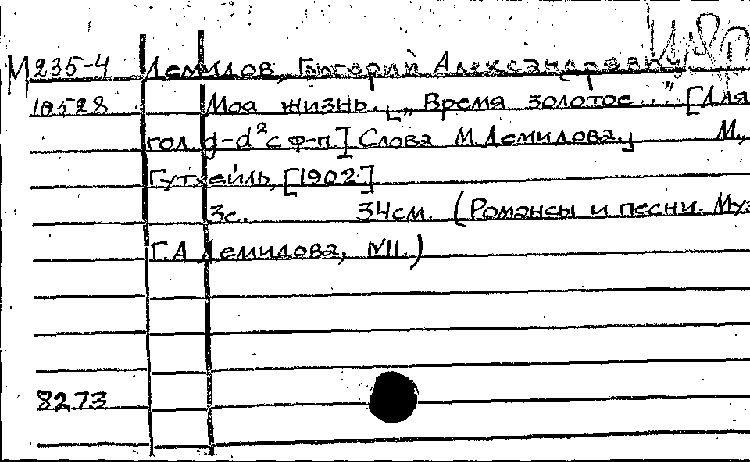 М235-4 Демидов, Григорий Александрович
10528 Моя жизнь. „Время золотое..." [Для
гол. g-d² с ф-п.] Слова М. Демидова. М.,
Гутхейль, [1902]
3с. 34см. (Романсы и песни. Муз
Г.А. Демидова, №11.)
8273